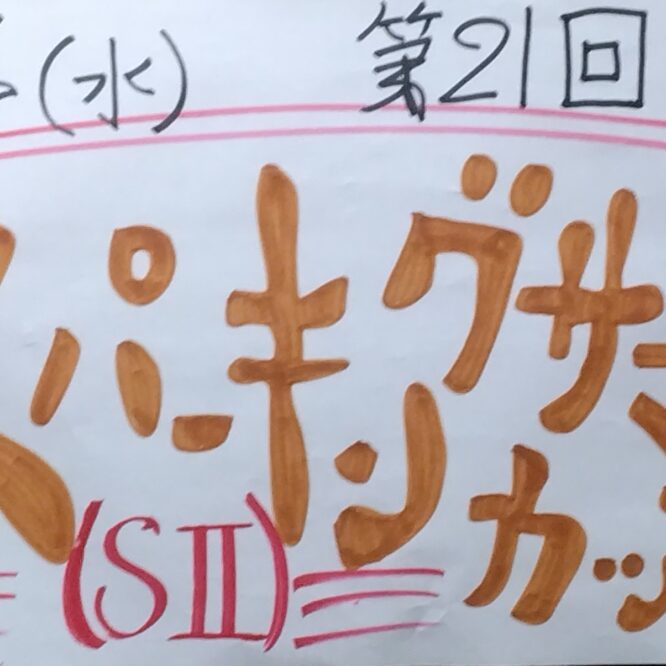 (水) 第21回
スパーキングサマー
カッ
(SⅡ)